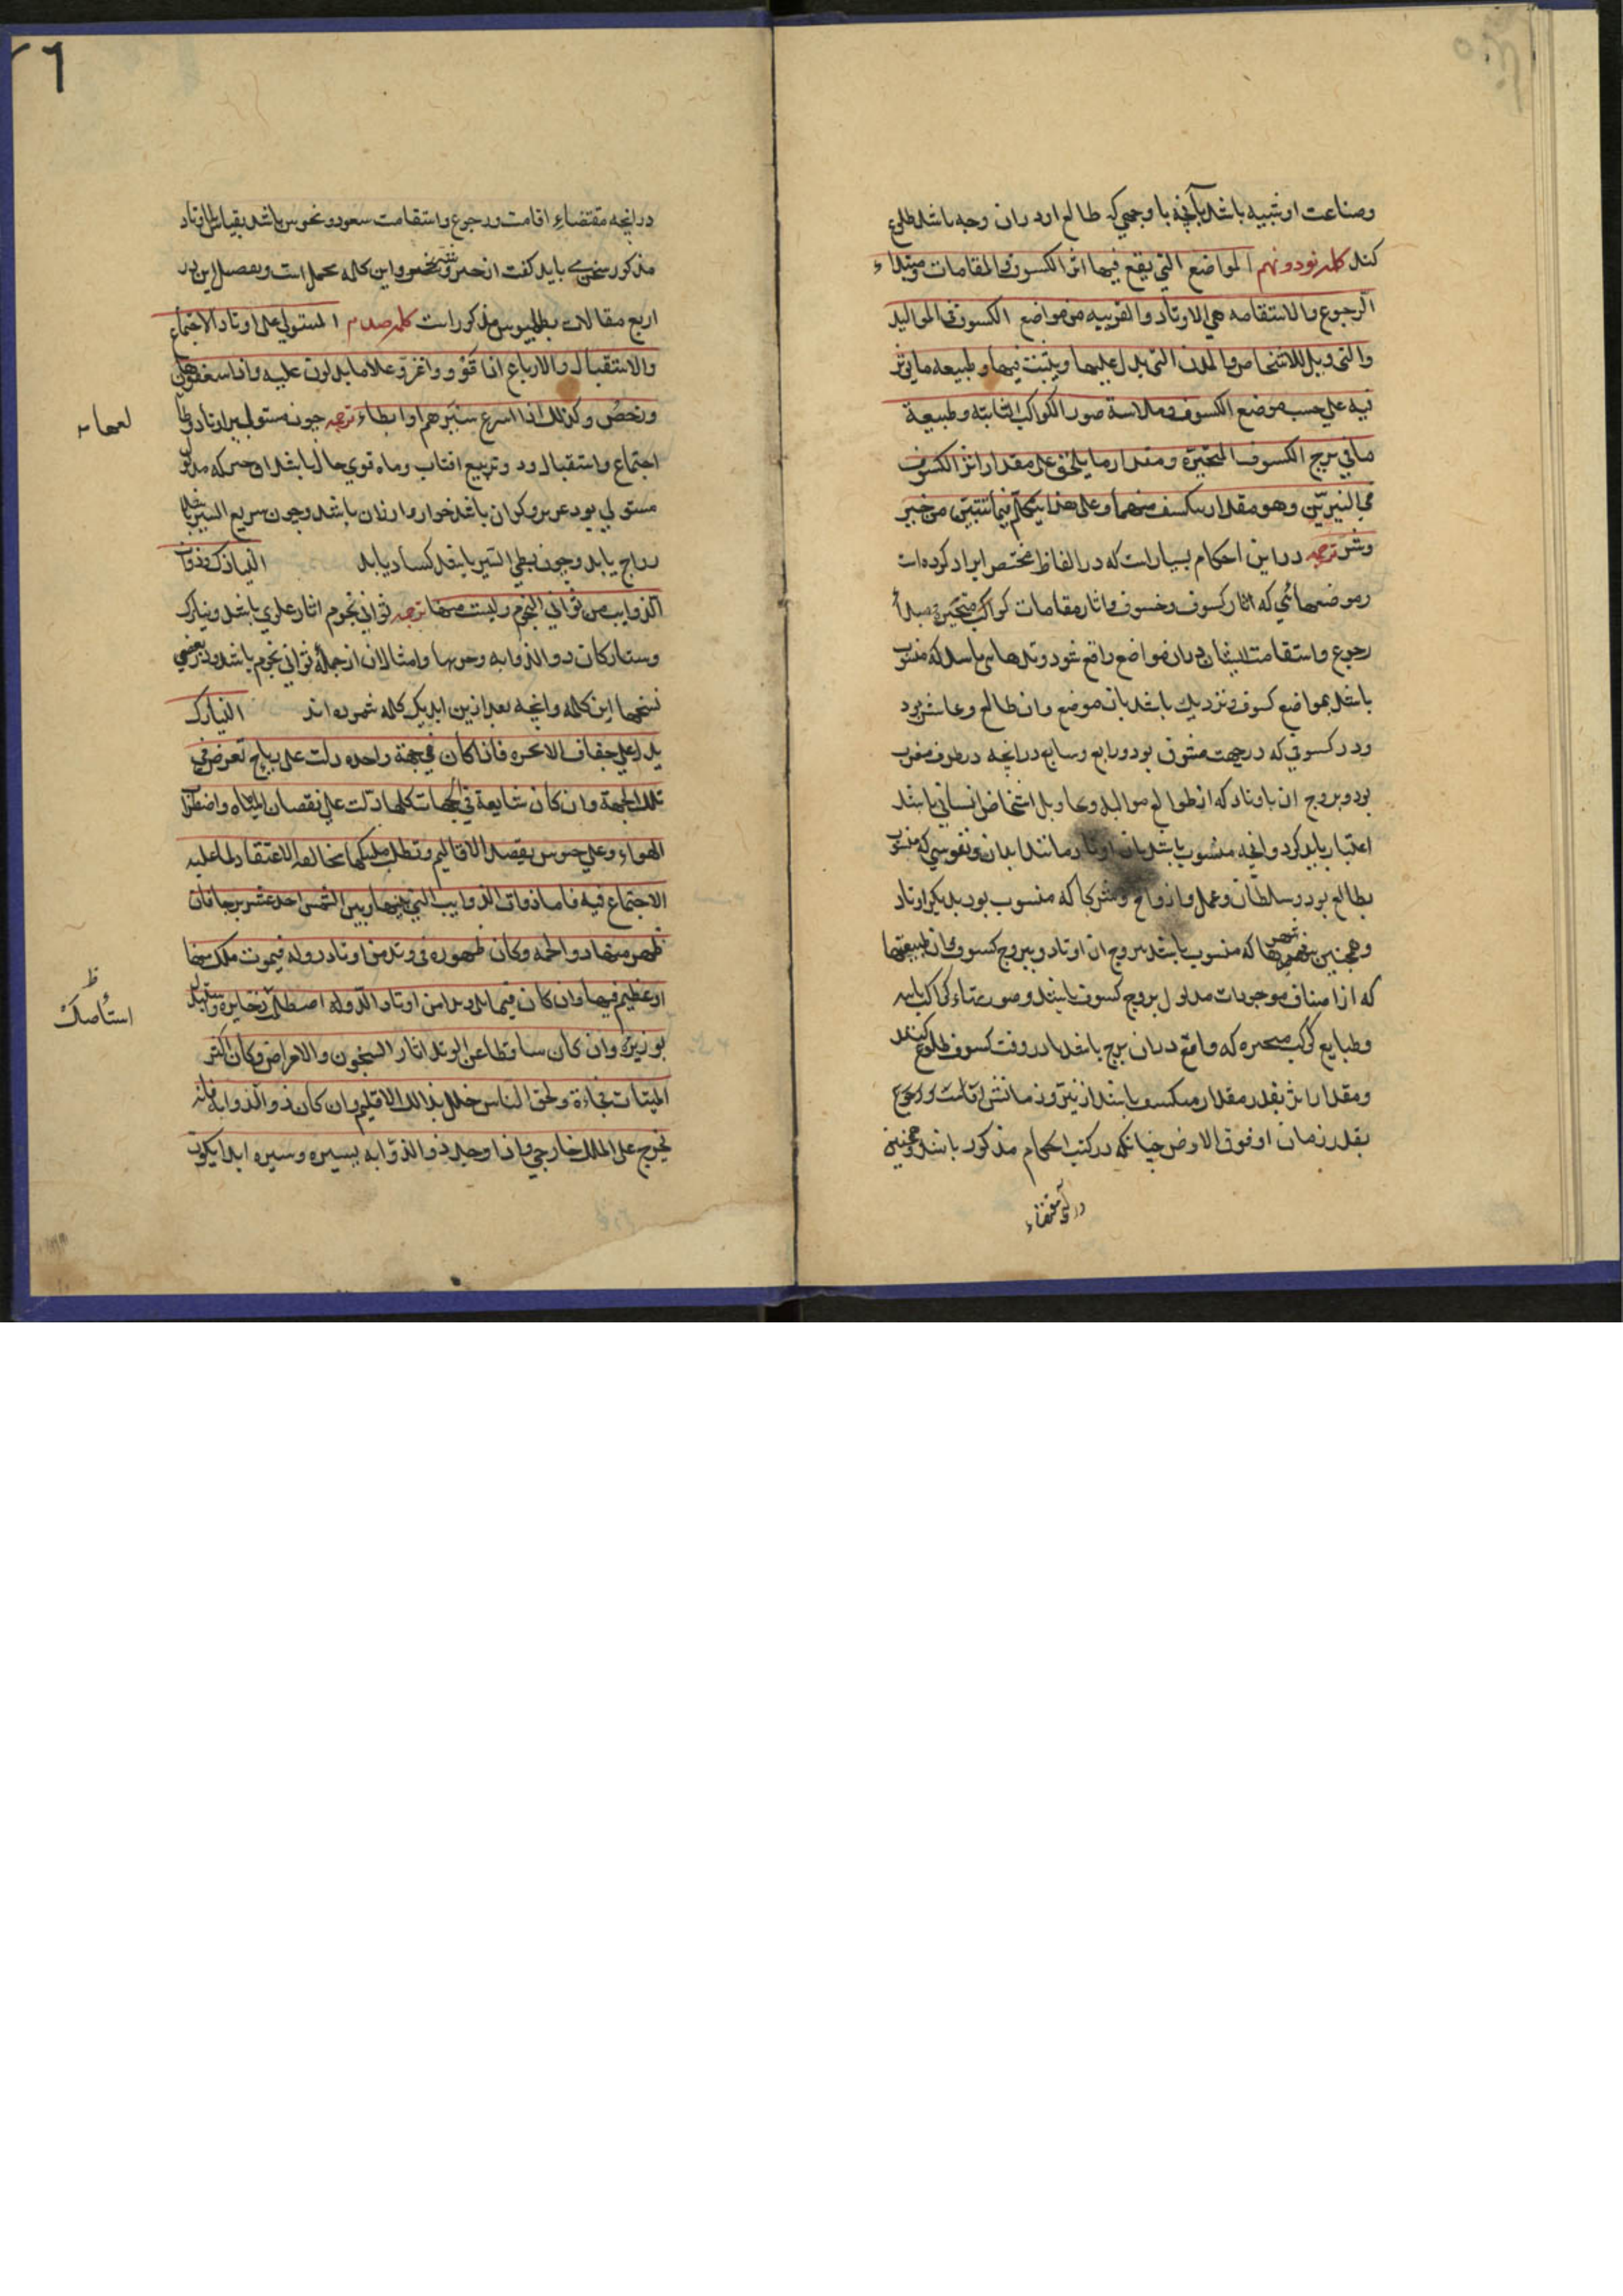 وصناعت او شبیه باشد بآنچه با وجهی که طالع او در ان وجه باشد طلوع
کند کلمه نود و نهم المواضع التی یقع فیها اثر الکسوف والمقامات ومبتداء
الرجوع والاستقامه هی الاوتاد والقریبه من مواضع الکسوف فی الموالید
والتحویل للاشخاص والمدن التی یدل علیها ویثبت فیها وطبیعه ما یؤثر
فیه علی حسب موضع الکسوف وملابسة صور الکواکب الثابته وطبیعة
ما فی برج الکسوف المتحیرة ومقدار ما یلحق علی مقدار اثر الکسوف
فی النیرین وهو مقدار ینکسف منهما وعلی هذا یتکلم فیما تبین من خیر
وشر ترجمه در این احکام بسیار است که در الفاظ مختصر ایراد کرده است
وموضعهائی که اثار کسوف وخسوف واثار مقامات کواکب متحیره ومبدأ
رجوع واستقامت ایشان دران مواضع واقع شود وتدها که منسوب
باشد بمواضع کسوف ونزدیک باشد بان موضع وان طالع وعاشر بود
ودر کسوفی که در جهت مشرق بود ورابع وسابع درانچه در طرف مغرب
بود وبروج ان باوتاد که از طوالع موالید وتحاویل اشخاص انسانی باشد
اعتبار باید کرد وانچه منسوب باشد بان اوتاد مانند ابدان ونفوس که منسوب
بطالع بود وسلطان وعمل وازواج وشرکا که منسوب بود بدیگر اوتاد
وهمچنین شهرها که منسوب باشد ببروج ان اوتاد وببروج کسوف وان طبیعتها
که از اصناف موجودات مدلول بروج کسوف باشد وصورتهاء کواکب ثابته
وطبایع کواکب متحیره که واقع دران برج باشد یا در وقت کسوف طلوع کنند
ومقدار اثر بقدر مقدار منکسف باشد از نیر وزمانش اقامت ورجوع
بقدر زمان او فوق الارض چنانکه در کتب احکام مذکور باشد وهمچنین
در آنچه مقتضاء
درانچه مقتضاء اقامت ورجوع واستقامت سعود ونحوس باشد بقیاس با اوتاد
مذکور سخن باید گفت از خیر وشر واین کلمه مجمل است وتفصیل این در
اربع مقالات بطلمیوس مذکور است کلمه صدم المستولی علی اوتاد الاجتماع
والاستقبال والارباع اذا قوی وعزّ وعلا ما یدلون علیه واذا سفل
ورخص وکذلک اذا اسرع سیرهم او ابطاء ترجمه چون مستولی بر اوتاد
اجتماع واستقبال ودو تربیع افتاب وماه قوی حال باشد ان چیز که مدلول
مستولی بود عزیز وگران باشد خوار وارزان باشد وچون سریع السیر باشد
رواج یابد وچون بطی السیر باشد کساد یابد النیازک وذوات
الذوایب من ثوانی النجوم ولیست منها ترجمه ثوانی نجوم اثار علوی باشد ونیازک
وستارکان ذو الذوابه وحربها وامثال ان از جملهٔ ثوانی نجوم باشد ودر بعضی
نسخها این کلمه وانچه بعد ازین اید یک کلمه شمرده اند النیازک
یدل علی جفاف الابخره فاذا کان فی جهة واحده دلت علی ریاح تعرض فی
تلک الجهة وان کان شایعة فی الجهات کلها دلت علی نقصان المیاه واضطراب
الهواء وعلی جیوش یقصد الاقالیم وتطلب ملیکها مخالفه الاعتقاد لما علیه
الاجتماع فیه فاما ذوات الذوایب التی بینها وبین الشمس احد عشر برجا فان
ظهر منها ذو الجمه وکان ظهوره فی وتد من اوتاد دوله فیموت ملک منها
او عظیم فیها وان کان فیما یلی وتدا من اوتاد الدوله اصطلح ذخایره واستبدل
بوزیره وان کان ساقطا عن الوتد اثار السجون والامراض وکان اکثر
المیتات فجاءة ولحق الناس خلل بذالک الاقلیم وان کان ذو الذوابه فانه
یخرج علی الملک خارجی واذا وجد ذو الذوابه یسیر وسیره ابدا یکون
استأصلت
ظ